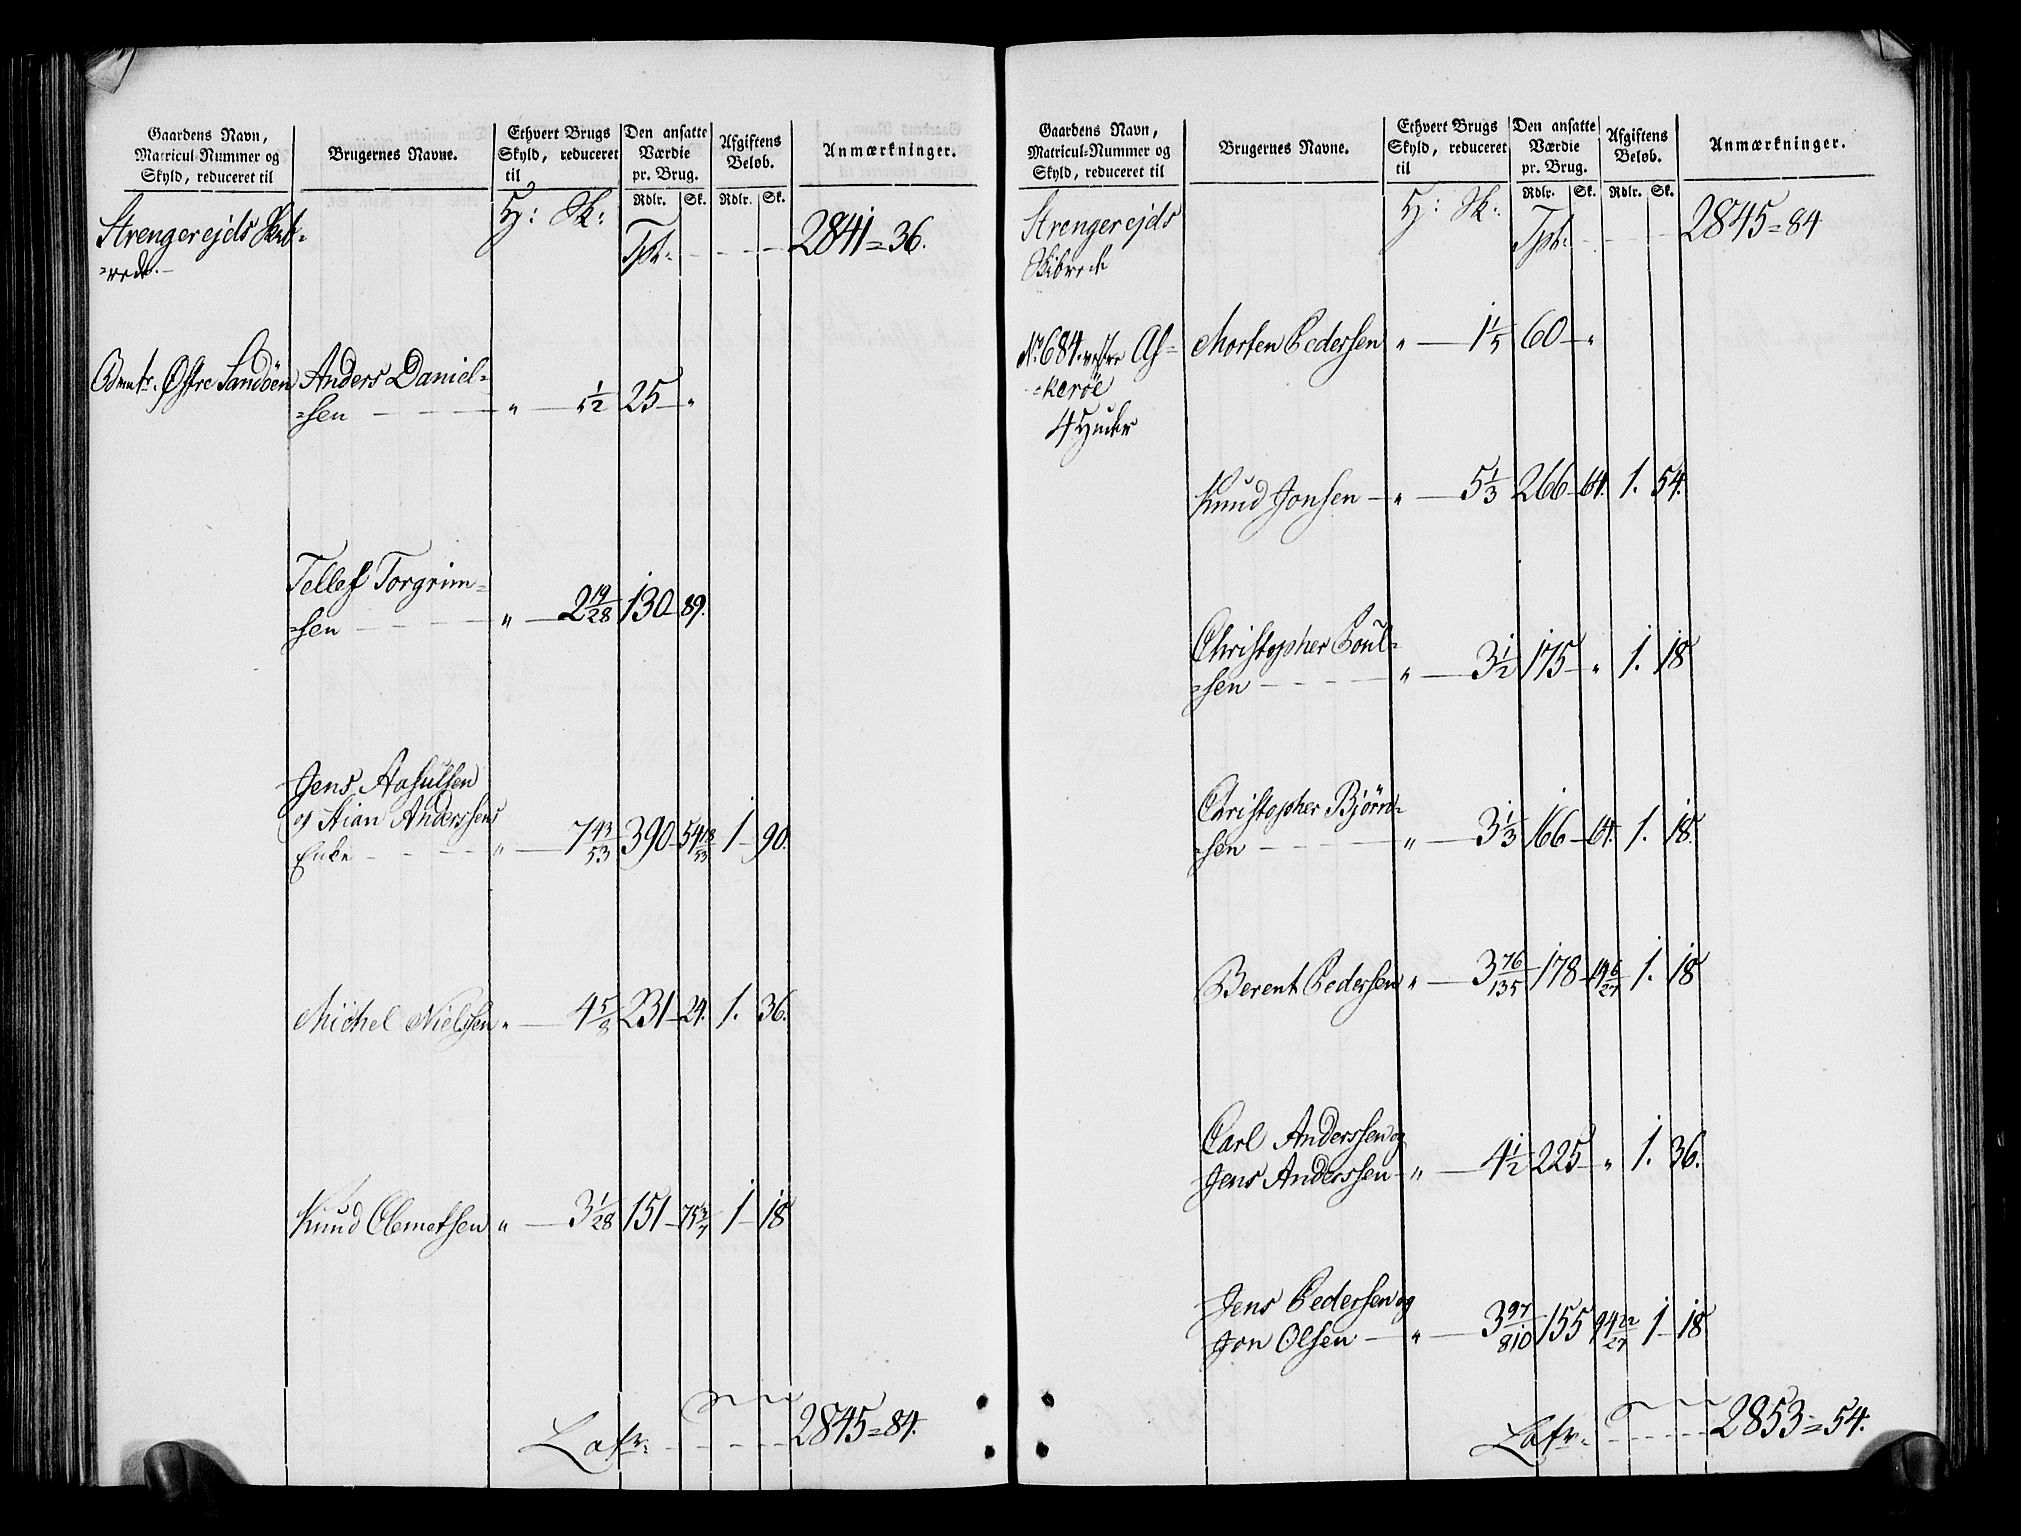 Gaardens Navn,
Matricul-Nummer og
Skyld, reduceret til
Brugernes Navne.
Ethvert Brugs
Skyld, reduceret
til
Den ansatte
Værdie
pr. Brug.
Afgiftens
Beløb.
Anmærkninger.
Rdlr. Sk. Rdlr. Sk.
Strengerejds Skib-
-rede.
H: Sk:
Tpt: 2841=36.
Østre Sandöen Anders Daniel-
-sen " 1/2 25 "
Tellef Torgrim-
-sen " 2 19/28 130 89.
Jens Aasulsen
og Stian Anderssens
Enke " 7 43/53 390 54 18/53 1 90.
Michel Nielsen " 4 5/8 231 24. 1. 36.
Knud Clemetsen " 3 1/28 151 75 3/7 1 18
Lafr: 2845=84.
Gaardens Navn,
Matricul-Nummer og
Skyld, reduceret til
Brugernes Navne.
Ethvert Brugs
Skyld, reduceret
til
Den ansatte
Værdie
pr. Brug.
Afgiftens
Beløb.
Anmærkninger.
Rdlr. Sk. Rdlr. Sk.
Strengerejds
Skibrede
H: Sk:
Tpt: 2845=84
No 684. vestre As-
-kerøe
4 Huder
Morten Pedersen " 1 1/5 60 "
Knud Jonsen " 5 1/3 266 64. 1. 54.
Christopher Poul-
-sen " 3 1/2 175 " 1. 18
Christopher Bjørn-
-sen " 3 1/3 166 64. 1. 18.
Berent Pedersen " 3 76/135 178 14 6/27 1. 18
Carl Anderssen og
Jens Anderssen " 4 1/2 225 " 1. 36.
Jens Pedersen og
Jon Olsen " 3 97/810 155 94 22/27 1 18
Lafr: 2853=54.